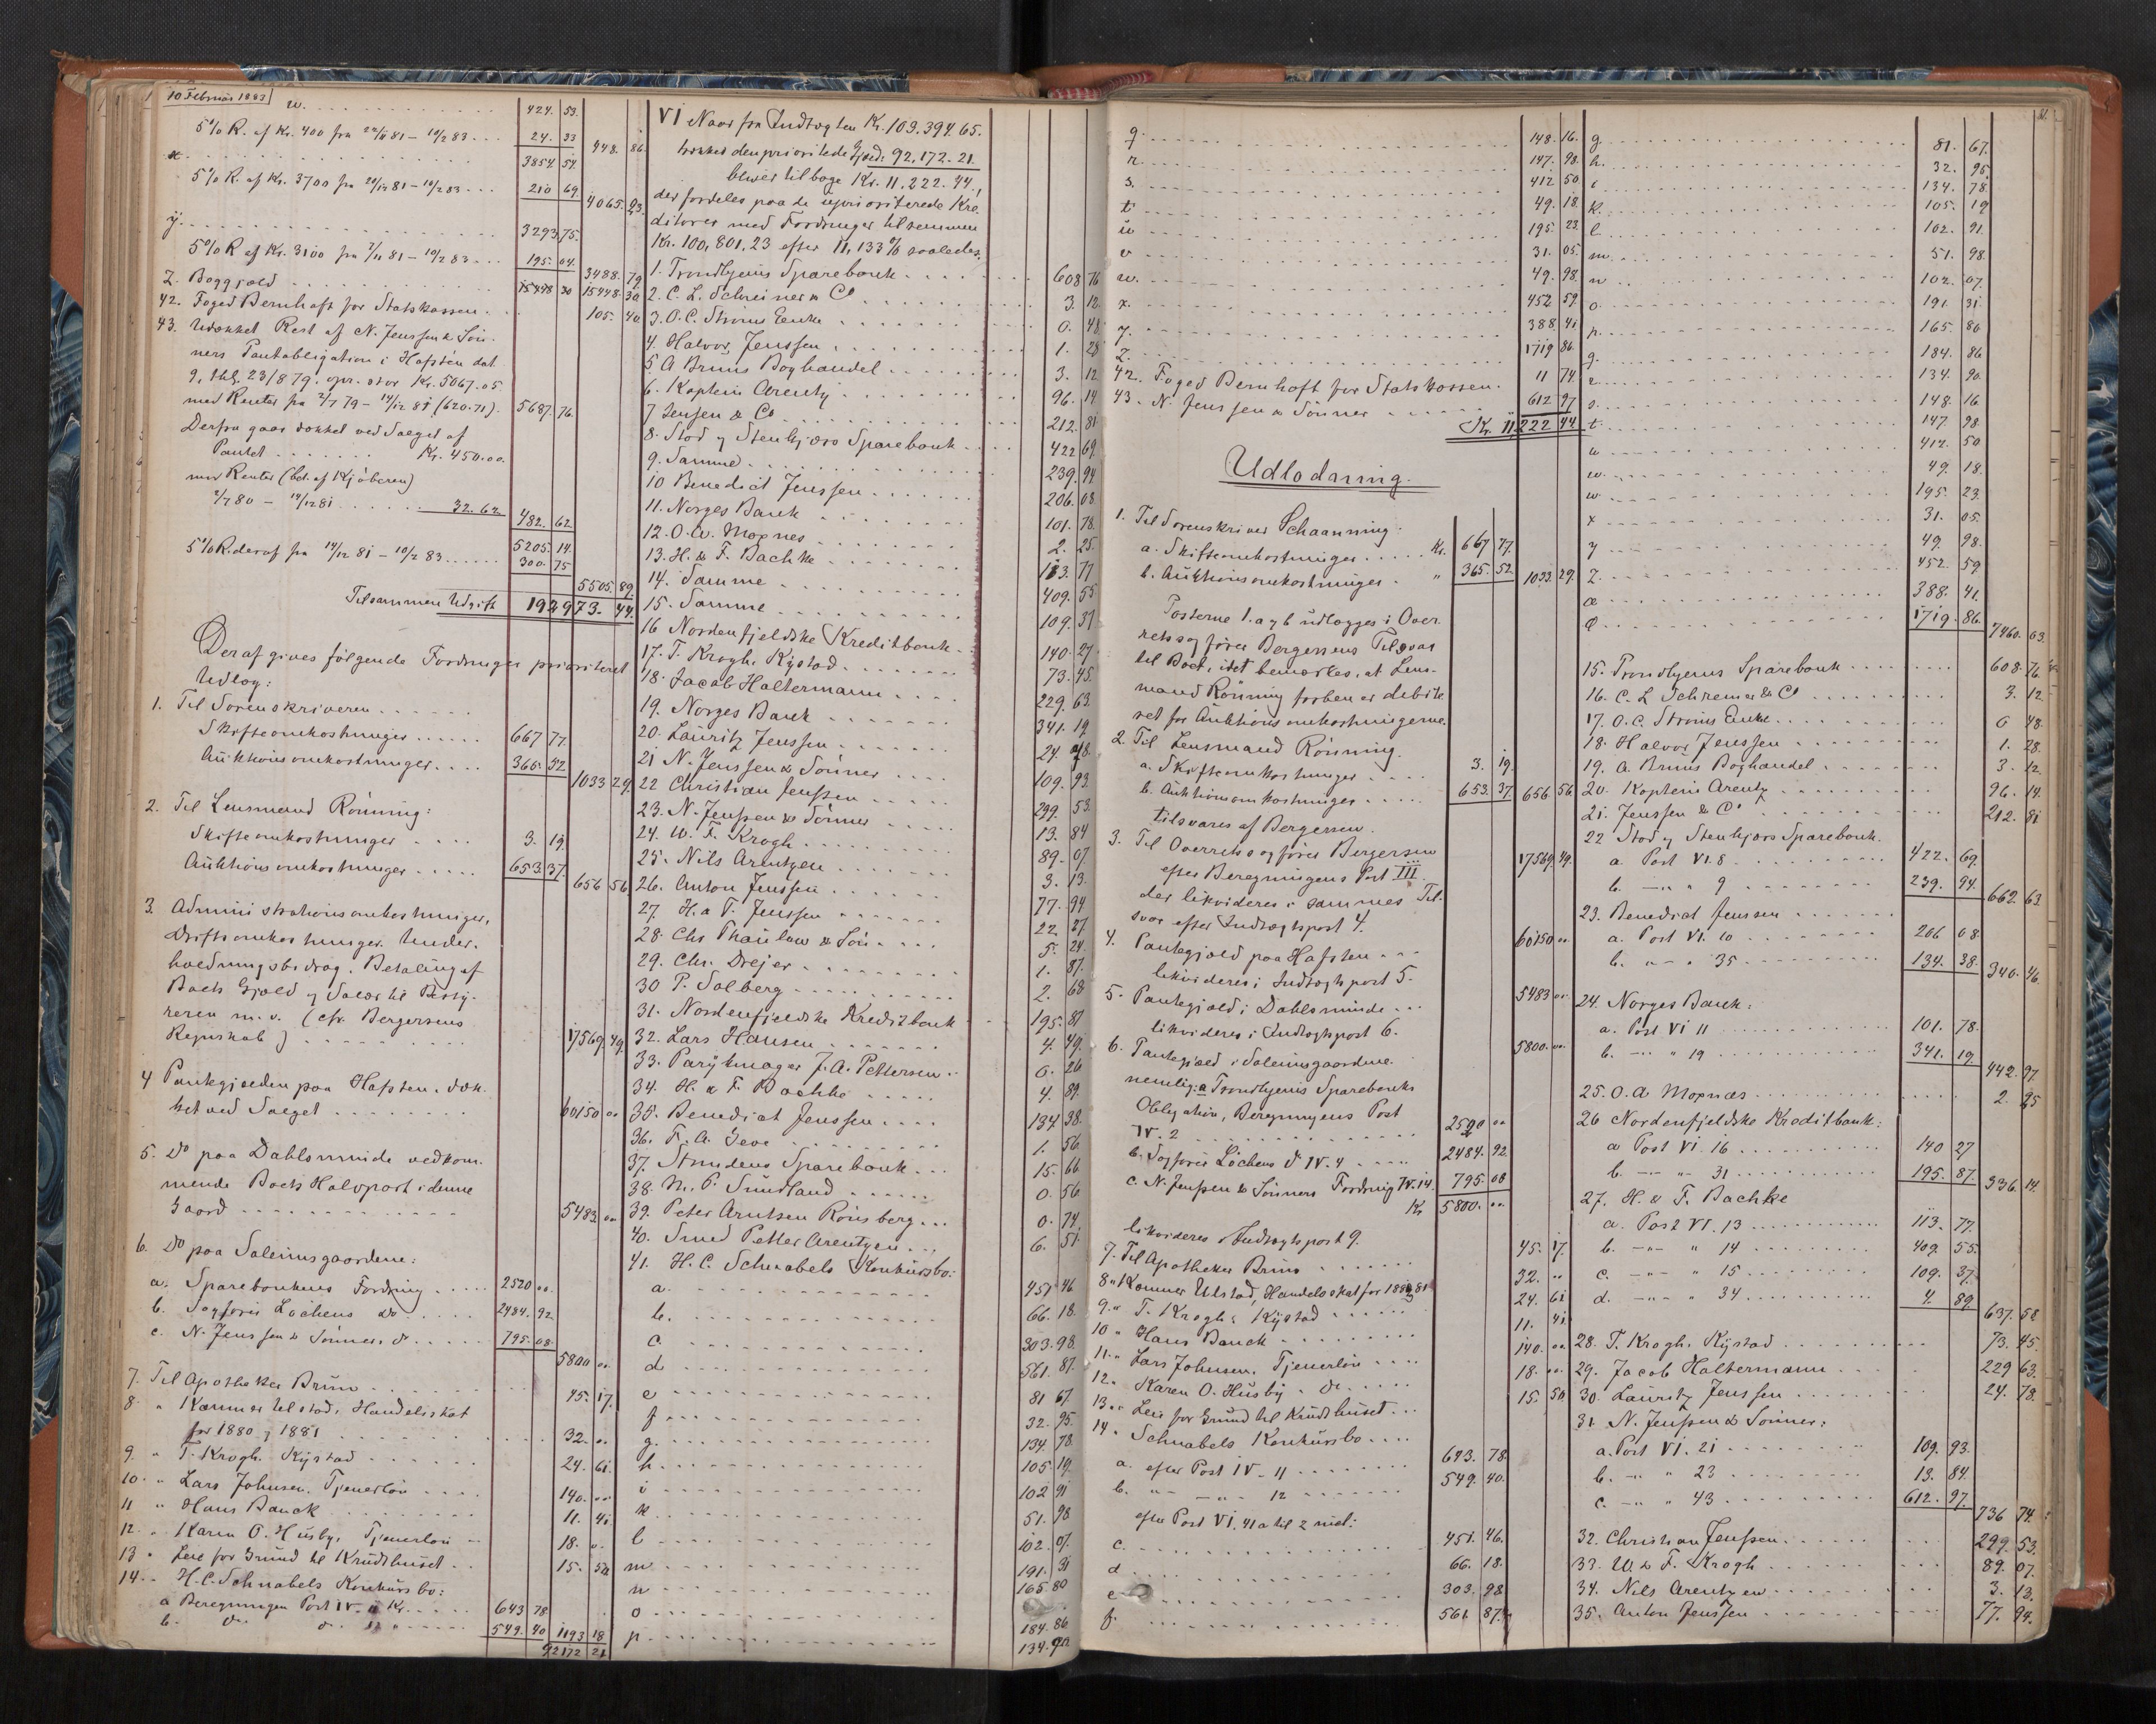 10 Februar 1883
w. 424. 53.
5% R. af Kr. 400 fra 24/11 81 – 10/2 83 24. 33 448. 86.
x. 3854 54.
5% R. af Kr. 3700 fra 24/12 81 – 10/2 83 210 69. 4065. 23.
y. 3293. 75.
5% R af Kr. 3100 fra 7/11 81 – 10/2 83 195. 04. 3488. 79
Z. Boggjæld 15448 30 15448. 30
42. Foged Bernhoft for Statskassen. 105. 40.
43. Udækket Rest af N. Jenssen & Søn-
ners Pantobligation i Hafsten dat.
9, thgl. 23/8 79. opr. stor Kr. 5067.05.
med Renter fra 2/7 79 – 14/12 81 (620.71). 5687. 76.
Derfra gaar dækket ved Salget af
Pantet Kr. 450.00.
med Renter (bet. af Kjøberen)
2/7 80 – 14/12 81 32. 62 482. 62.
5205. 14.
5% R. deraf fra 14/12 81 – 10/2 83 300. 75 5505. 89.
Tilsammen Udgift 192973. 44.
Deraf gives følgende Fordringer prioriteret
Udlæg:
1. Til Sorenskriveren
Skifteomkostninger 667 77.
Auktionsomkostninger 365. 52 1033 29.
2. Til Lensmand Rönning:
Skifteomkostninger 3. 19.
Auktionsomkostninger 653. 37. 656 56
3. Administrationsomkostninger,
Driftsomkostninger. Under-
holdningsbidrag. Betaling af
Boets Gjæld og Salær til Besty-
reren m.v. (cfr. Bergersens
Regnskab) 17569 49.
4 Pantegjælden paa Hafsten. dæk-
ket ved Salget 60150 00
5. Do paa Dahlsminde vedkom-
mende Boets Halvpart i denne
Gaard 5483 00
6. Do paa Saleinsgaardene:
a. Sparebankens Fordring 2520 00.
b. Sagfører Lochens do 2484. 92
c. N. Jenssen & Sönners do 795. 08. 5800 00.
7. Til Apotheker Brun 45. 17.
8. " Kæmner Ulstad, Handelsskat
for 1880 og 1881 32. 00
9. " T. Krogh. Kystad 24. 61.
10. " Lars Johnsen. Tjenerlön 140. 00
11 " Hans Banck 11. 41
12. " Karen O. Husby. Tjenerlön 18. 0.
13 " Leie for Grund til Krudthuset 15. 50
14. " H. C. Schnabels Konkursbo:
a Beregningen Post IV. 11 Kr. 643 78.
b. do. do. 549. 40 1193 18
92172 21

VI Naar fra Indtægten Kr. 109.394.65.
trækkes den prioritede Gjæld. 92,172.21
bliver tilbage Kr. 11.222.44,
der fordeles paa de uprioriterede Kre-
ditorer med Fordringer tilsammen
Kr. 100,801.23 efter 11,133% saaledes.
1. Trondhjems Sparebank 608 76
2. C. L. Schreiner & Co 3. 12.
3. O. C. Ströms Enke 0. 48.
4. Halvor Jenssen 1. 28
5. A Bruns Boghandel 3. 12
6. Kaptein Arentz 96. 14
7 Jensen & Co 212. 81
8. Stod og Stenkjærs Sparebank 422 69.
9. Samme 239. 94
10 Benedict Jenssen 206. 08.
11. Norges Bank 101. 78.
12. O. A. Mosnes 2. 25.
13. H. & F. Bachke 113. 77
14. Samme 409. 55
15. Samme 109. 37
16 Nordenfjeldske Kreditbank 140. 27
17. T. Krogh. Kystad 73. 45.
18. Jacob Haltermann 229. 63.
19. Norges Bank 341. 19
20. Lauritz Jenssen 24. 78.
21 N. Jenssen & Sönner 109. 93.
22 Christian Jenssen 299. 53.
23. N. Jenssen & Sönner 13. 84
24. W. F. Krogh 89. 07.
25. Nils Arentzen 3. 13.
26. Anton Jenssen 77. 94
27. H. a F. Jenssen 22. 27
28. Chr Thaulow & Sön 5. 24.
29. Chr. Drejer 1. 87.
30 P. Solberg 2. 68
31. Nordenfjeldske Kreditbank 195. 87
32. Lars Hansen 4. 49.
33. Parykmager J. A. Pettersen 0. 26
34. H. & F. Bachke 4. 89.
35. Benedict Jenssen 134 38.
36. F. A. Geve 1. 56
37. Strindens Sparebank 15. 66
38. M. P. Sundland 0. 56
39. Peter Arntsen Rönsberg 0. 74.
40. Smed Petter Arentzen 6. 51.
41. H. C. Schnabels Konkursbo:
a. 451 46
b. 66. 18.
c. 303. 98.
d 561. 87.
e 81 67.
f 32. 95.
g. 134. 78
h. 105. 19.
i 102 91
k 51. 98
l 102. 07.
m 191. 31
n 165 80
o 184. 86
p. 134. 90

q. 148. 16.
r. 147. 98.
s. 412 50
t 49. 18.
u 195. 23
v 31. 05
w. 49. 98.
x. 452 59
y. 388. 41
Z. 1719 86.
42. Foged Bernhoft for Statskassen. 11 74.
43. N. Jenssen & Sönner 612 97
Kr. 11,222 44
Udlodning.
1. Til Sorenskriver Schaanning.
a. Skifteomkostninger Kr. 667 77.
b. Auktionsomkostninger " 365. 52 1033. 29.
Posterne 1. a og b udlægges i Over-
retssagfører Bergersens Tilsvar
til Boet, idet bemærkes, at Lens-
mand Rönning forben er debite-
ret for Auktionsomkostningerne.
2. Til Lensmand Rönning.
a. Skifteomkostninger 3. 19.
b. Auktionsomkostninger 653. 37. 656. 56
tilsvares af Bergersen.
3. Til Overretssagfører Bergersen
efter Beregningens Post III 17569. 49.
der likvideres i sammes Til-
svar efter Indtægtspost 4.
4. Pantegjæld paa Hafsten 60150 00
likvideres i Indtægtspost 5.
5. Pantegjæld i Dahlsminde 5483 00.
likvideres i Indtægtspost 6.
6. Pantegjæld i Saleinsgaardene 5800. 00.
nemlig: a Trondhjems Sparebanks
Obligation, Beregningens Post
IV. 2 2520 00
b. Sagfører Lochens do IV. 4 2484. 92.
c. N. Jenssen & Sönners Fordring IV. 14. 795. 08
Kr. 5800. 00.
likvideres i Indtægtspost 9.
7. Til Apotheker Brun 45. 17.
8 " Kæmner Ulstad, Handelsskat for 1880 81 32. 00
9. " T. Krogh. Kystad 24. 61
10 " Hans Banck 11. 41
11. " Lars Johnsen. Tjenerlön 140. 00
12 " Karen O. Husby. do 18. 00.
13 " Leie for Grund til Krudthuset 15. 50.
14 " Schnabels Konkursbo
a. efter Post IV. 11 643. 78.
b. " " 12 549. 40.
efter Post VI, 41 a til z incl:
c. 451. 46.
d 66. 18.
e 303. 98
f. 561. 87.

g 81. 67.
h. 32. 95.
i 134. 78.
k. 105. 19
l 102. 91.
m. 51. 98.
n 102. 07.
o. 191. 31
p. 165. 80
q. 184. 86
r. 134. 90.
s. 148. 16
t. 147. 98
u 412. 50
v. 49. 18.
w 195. 23.
x 31. 05.
y 49. 98.
Z. 452. 59
æ 388. 41.
ø 1719. 86. 7460. 63.
15. Trondhjems Sparebank 608. 76.
16. C. L Schreiner & Co 3. 12
17. O. C. Ströms Enke 0 48.
18. Halvor Jenssen 1. 28.
19. A. Bruns Boghandel 3. 12.
20. Kaptein Arentz 96. 14.
21. Jenssen & Co 212. 81
22 Stod og Stenkjærs Sparebank.
a Post VI. 8 422. 69.
b. — " 9 239. 94. 662. 63.
23. Benedict Jenssen
a. Post VI. 10 206 08
b. " " 35 134. 38. 340. 46.
24. Norges Bank:
a. Post VI 11 101. 78.
b. — " 19 341. 19 442. 97.
25. O. A Mosnæs 2. 25
26 Nordenfjeldske Kreditbank:
a Post VI. 16 140 27
b. — " 31 195. 87. 336. 14.
27. H. & F. Bachke
a. Post VI. 13 113. 77.
b. — " 14 409. 55.
c. — " 15 109. 37.
d. — " 34 4. 89 637. 58
28. T. Krogh. Kystad 73. 45.
29. Jacob Haltermann 229 63.
30. Lauritz Jenssen 24. 78.
31. N. Jenssen & Sönner:
a. Post VI. 21 109. 93.
b. — " 23 13. 84.
c. — " 43 612. 97. 736 74.
32. Christian Jenssen 299. 53.
33. W. & F. Krogh 89. 07.
34. Nils Arentzen 3. 13.
35. Anton Jenssen 77. 94.